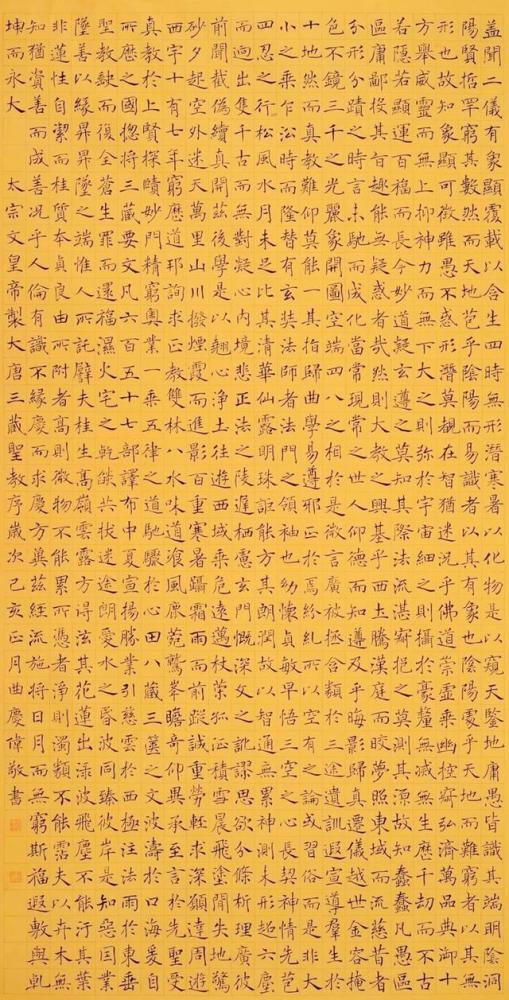 蓋聞二儀有象顯覆載以含生四時無形潛寒暑以化物是以窺天鑒地庸愚皆識其端明陰洞
陽賢哲罕窮其數然而天地苞乎陰陽而易識者以其有象也陰陽處乎天地而難窮者以其無
形也故知象顯可徵雖愚不惑形潛莫覩在智猶迷況乎佛道崇虛乘幽控寂弘濟萬品典御十
方舉威靈而無上抑神力而無下大之則彌於宇宙細之則攝於豪釐無滅無生歷千劫而不古
若隱若顯運百福而長今妙道凝玄遵之莫知其際法流湛寂挹之莫測其源故知蠢蠢凡愚區
區庸鄙投其旨趣能無疑惑者哉然則大教之興基乎西土騰漢庭而皎夢照東域而流慈昔者
分形分蹟之時言未馳而成化當常現常之世人仰德而知遵及乎晦影歸真遷儀越世金容掩
色不鏡三千之光麗象開圖空端四八之相於是微言廣被拯含類於三途遺訓遐宣導羣生於
十地然而真教難仰莫能一其指歸曲學易遵邪正於焉紛糺所以空有之論或習俗而是非大
小之乘乍沿時而隆替有玄奘法師者法門之領袖也幼懷貞敏早悟三空之心長契神情先苞
四忍之行松風水月未足比其清華仙露明珠詎能方其朗潤故以智通無累神測未形超六塵
而迥出隻千古而無對凝心內境悲正法之陵遲栖慮玄門慨深文之訛謬思欲分條析理廣彼
前聞截偽續真開茲後學是以翹心淨土往遊西域乘危遠邁杖策孤征積雪晨飛塗閒失地驚
砂夕起空外迷天萬里山川撥煙霞而進影百重寒暑躡霜雨而前蹤誠重勞輕求深願達周遊
西宇十有七年窮歷道邦詢求正教雙林八水味道飡風鹿菀鷲峯瞻奇仰異承至言於先聖受
真教於上賢探賾妙門精窮奧業一乘五律之道馳驟於心田八藏三篋之文波濤於口海爰自
所歷之國總將三藏要文凡六百五十七部譯布中夏宣揚勝業引慈雲於西極注法雨於東垂
聖教缺而復全蒼生罪而還福濕火宅之乾焰共拔迷途朗愛水之昏波同臻彼岸是知惡因業
墜善以緣昇昇墜之端惟人所託譬夫桂生高嶺雲露方得泫其花蓮出淥波飛塵不能汙其葉
非蓮性自潔而桂質本貞良由所附者高則微物不能累所憑者淨則濁類不能霑夫以卉木無
知猶資善而成善況乎人倫有識不緣慶而求慶方冀茲經流施將日月而無窮斯福遐敷與乾
坤而永大 太宗文皇帝製大唐三藏聖教序歲次己亥正月曲慶偉敬書